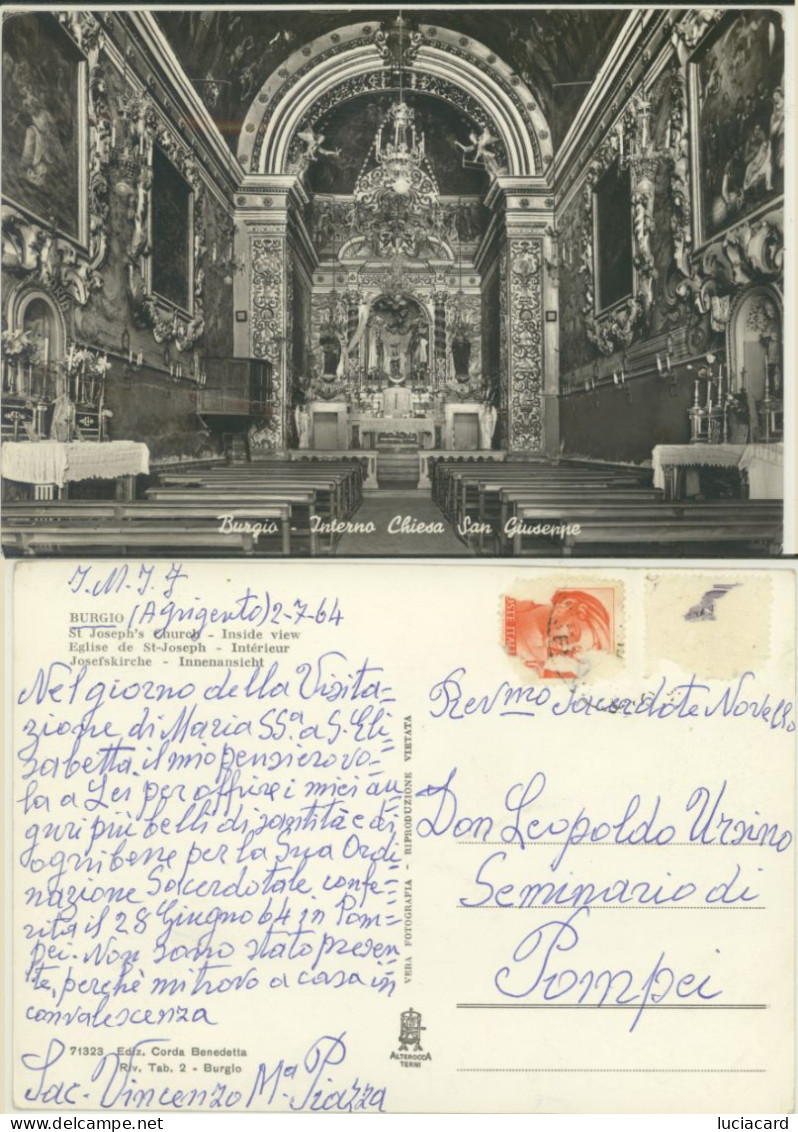 Burgio - Interno Chiesa San Giuseppe
J. M. J. J
BURGIO (Agrigento) 2-7-64
St Joseph's Church - Inside view
Eglise de St-Joseph - Intérieur
Josefskirche - Innenansicht
Nel giorno della Visita=
zione di Maria SS.a a S. Eli
sabetta, il mio pensiero vo=
la a Lei per offrire i miei au=
guri più belli di santità e di
ogni bene per la Sua Ordi=
nazione Sacerdotale confe=
rita il 28 Giugno 64 in Pom=
pei. Non sono stato presen=
te, perchè mi trovo a casa in
convalescenza
71323 Ediz. Corda Benedetta
Riv. Tab. 2 - Burgio
Sac. Vincenzo M.a Piazza
VERA FOTOGRAFIA - RIPRODUZIONE VIETATA
ALTEROCCA
TERNI
POSTE ITAL
Rev.mo Sacerdote Novello
Don Leopoldo Ursino
Seminario di
Pompei
luciacard
www.delcampe.net